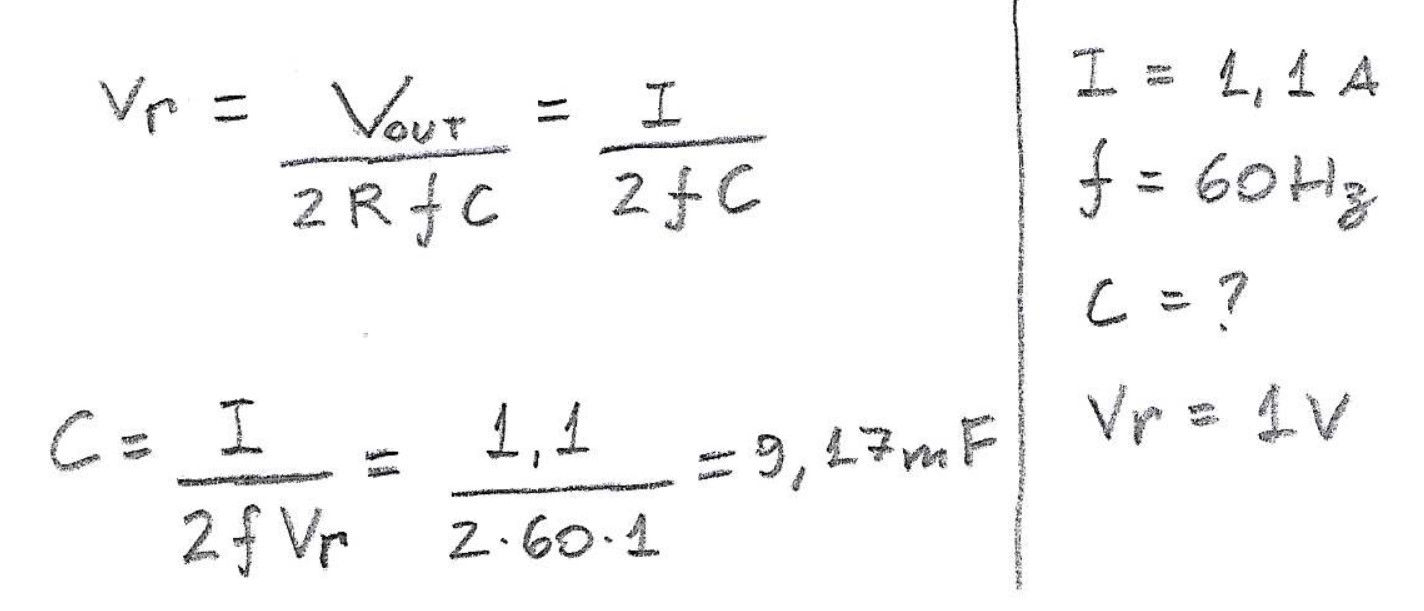 Vr = VOUT / 2RfC = I / 2fC
C = I / 2fVr = 1,1 / 2·60·1 = 9,17mF
I = 1,1 A
f = 60Hz
C = ?
Vr = 1V